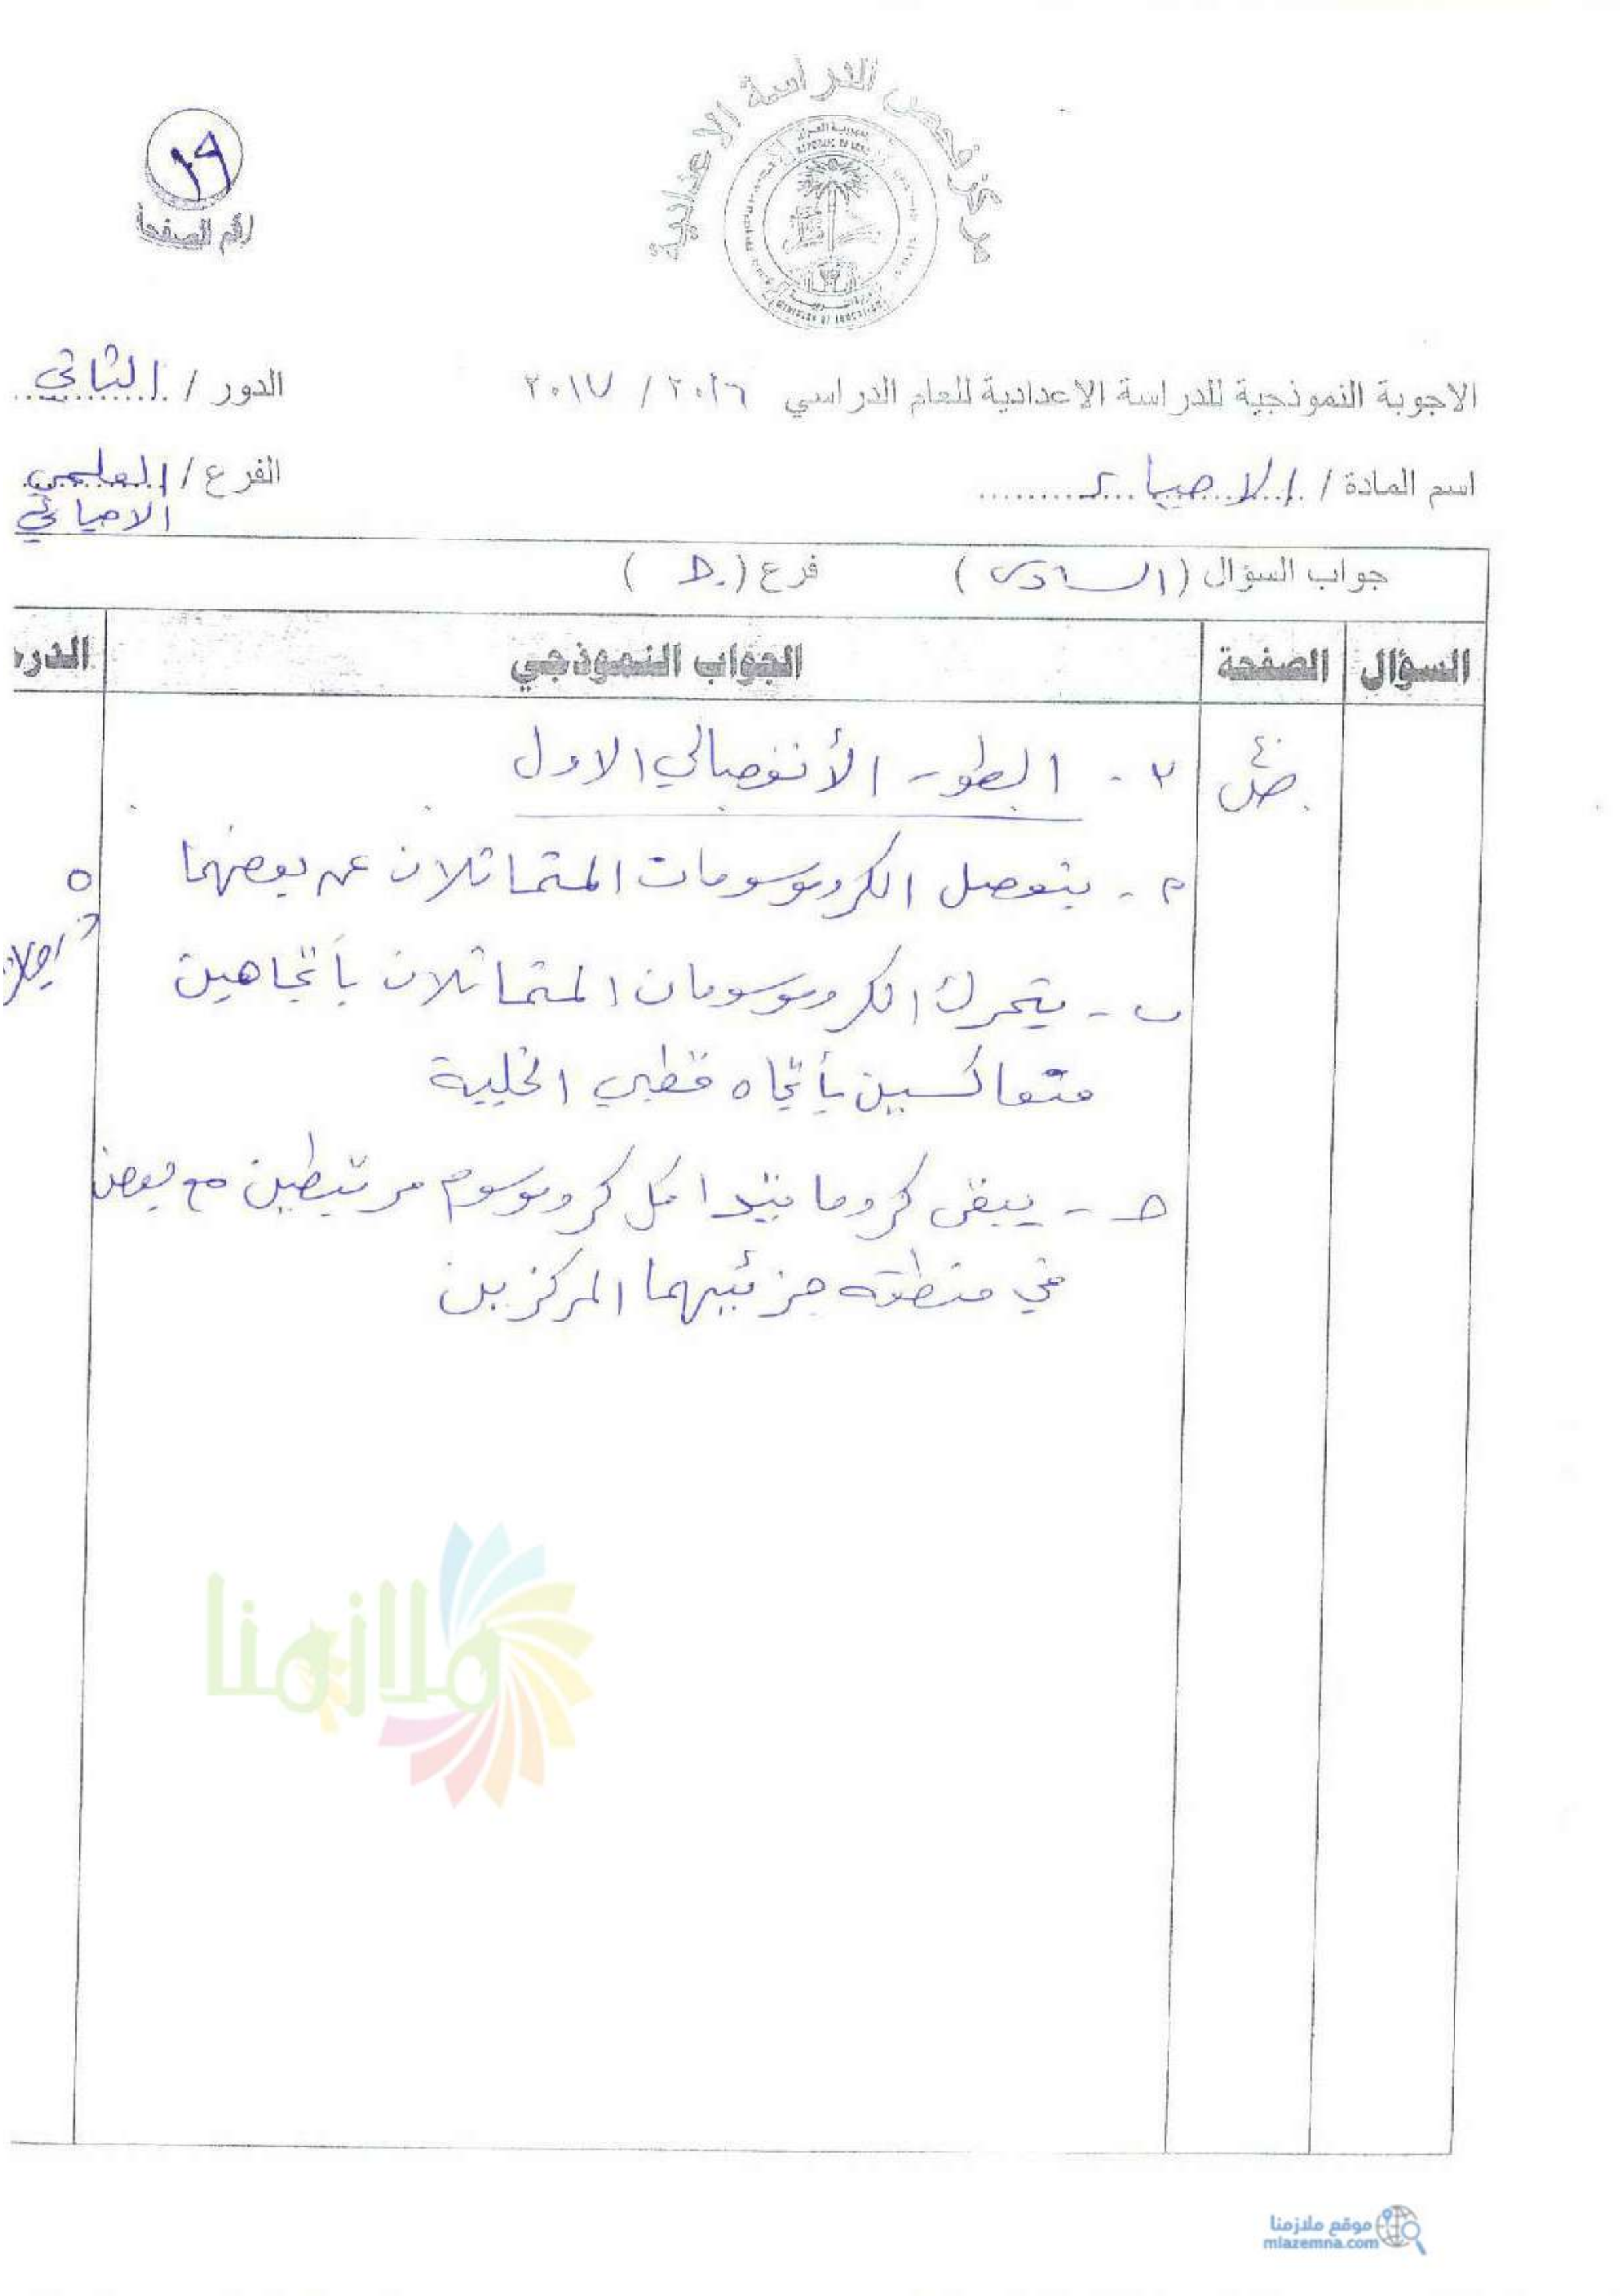 مركز فحص الدراسة الاعدادية
جمهورية العراق
REPUBLIC OF IRAQ
١٩
رقم الصفحة
الاجوبة النموذجية للدراسة الاعدادية للعام الدراسي ٢٠١٦ / ٢٠١٧
الدور / الثاني
اسم المادة / الاحياء
الفرع / العلمي
الاحيائي
جواب السؤال (السادس) فرع (ح)
السؤال الصفحة الجواب النموذجي الدرجـ
ص٤٠
٢- الطور الأنفصالي الاول
٥
م - ينفصل الكروموسومات المتماثلان عن بعضهما
ب - يتحرك الكروموسومان المتماثلان بأتجاهين
متعاكسين بأتجاه قطبي الخلية
ح - يبقى كروماتيدا كل كروموسوم مرتبطين مع بعض
في منطقة جزئيهما المركزين
ملازمنا
موقع ملازمنا
mlazemna.com